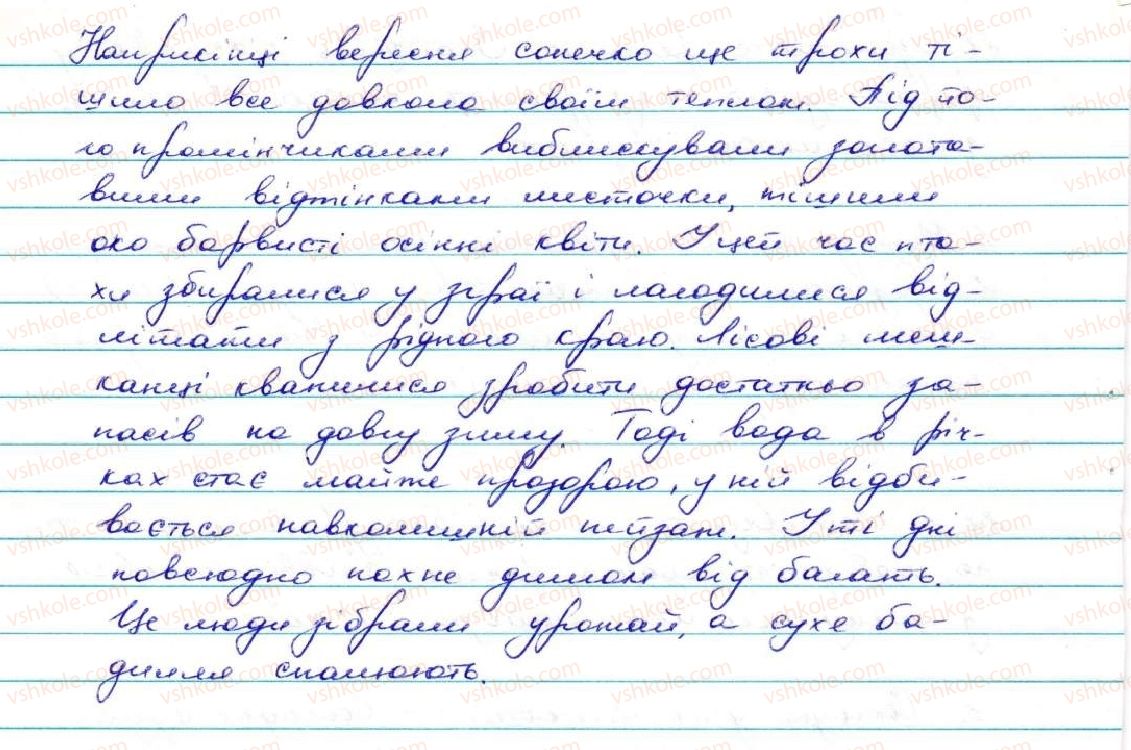 Наприкінці вересня сонечко ще трохи ті-
шило все довкола своїм теплом. Під йо-
го промінчиками виблискували золота-
вими відтінками листочки, тішили
око барвисті осінні квіти. У цей час пта-
хи збиралися у зграї і лагодилися від-
літати з рідного краю. Лісові меш-
канці квапилися зробити достатньо за-
пасів на довгу зиму. Тоді вода в річ-
ках стає майже прозорою, у ній відби-
вається навколишній пейзаж. У ті дні
повсюдно пахне димом від багать.
Це люди зібрали урожай, а сухе ба-
дилля спалюють.